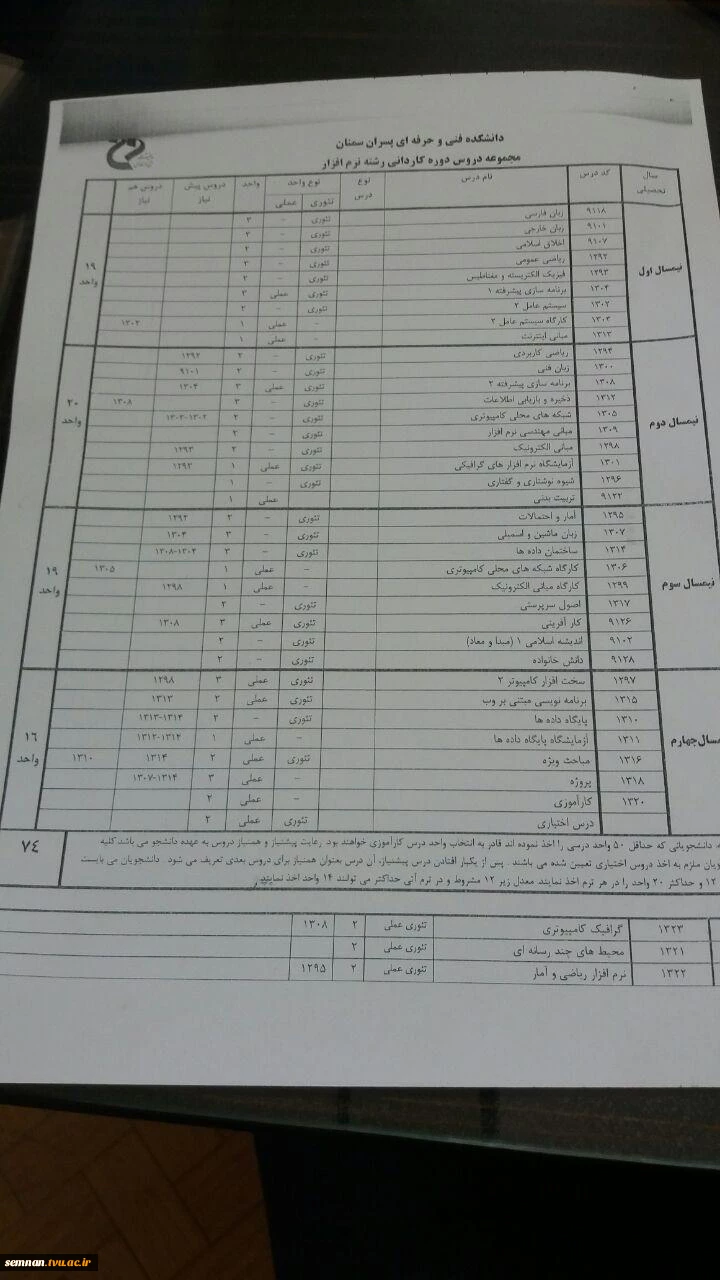 دانشکده فنی و حرفه ای پسران سمنان
مجموعه دروس دوره کاردانی رشته نرم افزار
سال تحصیلی | کد درس | نام درس | نوع درس | نوع واحد | تئوری | عملی | واحد | دروس پیش نیاز | دروس هم نیاز
نیمسال اول
۹۱۱۸ زبان فارسی تئوری - ۳
۹۱۰۱ زبان خارجی تئوری - ۳
۹۱۰۷ اخلاق اسلامی تئوری - ۲
۱۲۹۲ ریاضی عمومی تئوری - ۳
۱۲۹۳ فیزیک الکتریسته و مغناطیس تئوری - ۲
۱۳۰۴ برنامه سازی پیشرفته ۱ تئوری عملی ۳
۱۳۰۲ سیستم عامل ۲ تئوری - ۲
۱۳۰۳ کارگاه سیستم عامل ۲ - عملی ۱ ۱۳۰۲
۱۳۱۳ مبانی اینترنت - عملی ۱
۱۹ واحد
نیمسال دوم
۱۲۹۴ ریاضی کاربردی تئوری - ۲ ۱۲۹۲
۱۳۰۰ زبان فنی تئوری - ۲ ۹۱۰۱
۱۳۰۸ برنامه سازی پیشرفته ۲ تئوری عملی ۳ ۱۳۰۴
۱۳۱۲ ذخیره و بازیابی اطلاعات تئوری - ۳ ۱۳۰۸
۱۳۰۵ شبکه های محلی کامپیوتری تئوری - ۲ ۱۳۰۲-۱۳۰۳
۱۳۰۹ مبانی مهندسی نرم افزار تئوری - ۲
۱۲۹۸ مبانی الکترونیک تئوری - ۲ ۱۲۹۳
۱۳۰۱ آزمایشگاه نرم افزار های گرافیکی تئوری عملی ۱ ۱۲۹۲
۱۲۹۶ شیوه نوشتاری و گفتاری تئوری - ۱
۹۱۲۲ تربیت بدنی عملی ۱
۲۰ واحد
نیمسال سوم
۱۲۹۵ آمار و احتمالات تئوری - ۲ ۱۲۹۲
۱۳۰۷ زبان ماشین و اسمبلی تئوری - ۳ ۱۳۰۴
۱۳۱۴ ساختمان داده ها تئوری - ۳ ۱۳۰۴-۱۳۰۸
۱۳۰۶ کارگاه شبکه های محلی کامپیوتری - عملی ۱ ۱۳۰۵
۱۲۹۹ کارگاه مبانی الکترونیک - عملی ۱ ۱۲۹۸
۱۳۱۷ اصول سرپرستی تئوری - ۲
۹۱۲۶ کار آفرینی تئوری عملی ۳ ۱۳۰۸
۹۱۰۲ اندیشه اسلامی ۱ (مبدا و معاد) تئوری - ۲
۹۱۲۸ دانش خانواده تئوری - ۲
۱۹ واحد
مسال چهارم
۱۲۹۷ سخت افزار کامپیوتر ۲ تئوری عملی ۳ ۱۲۹۸
۱۳۱۵ برنامه نویسی مبتنی بر وب تئوری عملی ۲ ۱۳۱۳
۱۳۱۰ پایگاه داده ها تئوری - ۲ ۱۳۱۴-۱۳۱۳
۱۳۱۱ آزمایشگاه پایگاه داده ها - عملی ۱ ۱۳۱۴-۱۳۱۲
۱۳۱۶ مباحث ویژه تئوری عملی ۲ ۱۳۱۴ ۱۳۱۰
۱۳۱۸ پروژه - عملی ۳ ۱۳۱۴-۱۳۰۷
۱۳۲۰ کارآموزی - عملی ۲
درس اختیاری تئوری عملی ۲
۱۶ واحد
دانشجویانی که حداقل ۵۰ واحد درسی را اخذ نموده اند قادر به انتخاب واحد درس کارآموزی خواهند بود. رعایت پیشنیاز و همنیاز دروس به عهده دانشجو می باشد کلیه
ویان ملزم به اخذ دروس اختیاری تعیین شده می باشند . پس از یکبار افتادن درس پیشنیاز، آن درس بعنوان همنیاز برای دروس بعدی تعریف می شود . دانشجویان می بایست
۱۲ و حداکثر ۲۰ واحد را در هر ترم اخذ نمایند. معدل زیر ۱۲ مشروط و در ترم آتی حداکثر می توانند ۱۴ واحد اخذ نمایند.
۷۴
۱۳۲۳ گرافیک کامپیوتری تئوری عملی ۲ ۱۳۰۸
۱۳۲۱ محیط های چند رسانه ای تئوری عملی ۲
۱۳۲۲ نرم افزار ریاضی و آمار تئوری عملی ۲ ۱۲۹۵
semnan.tvu.ac.ir